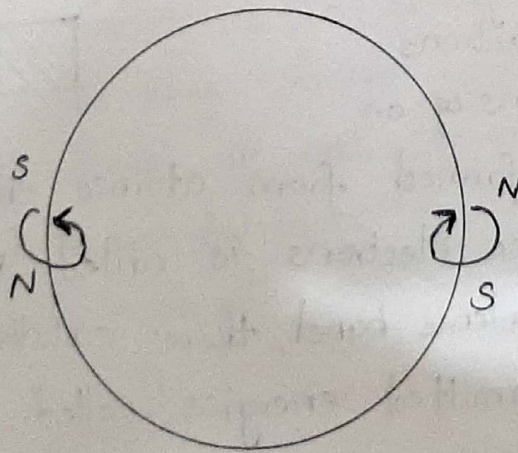 S
N
N
S